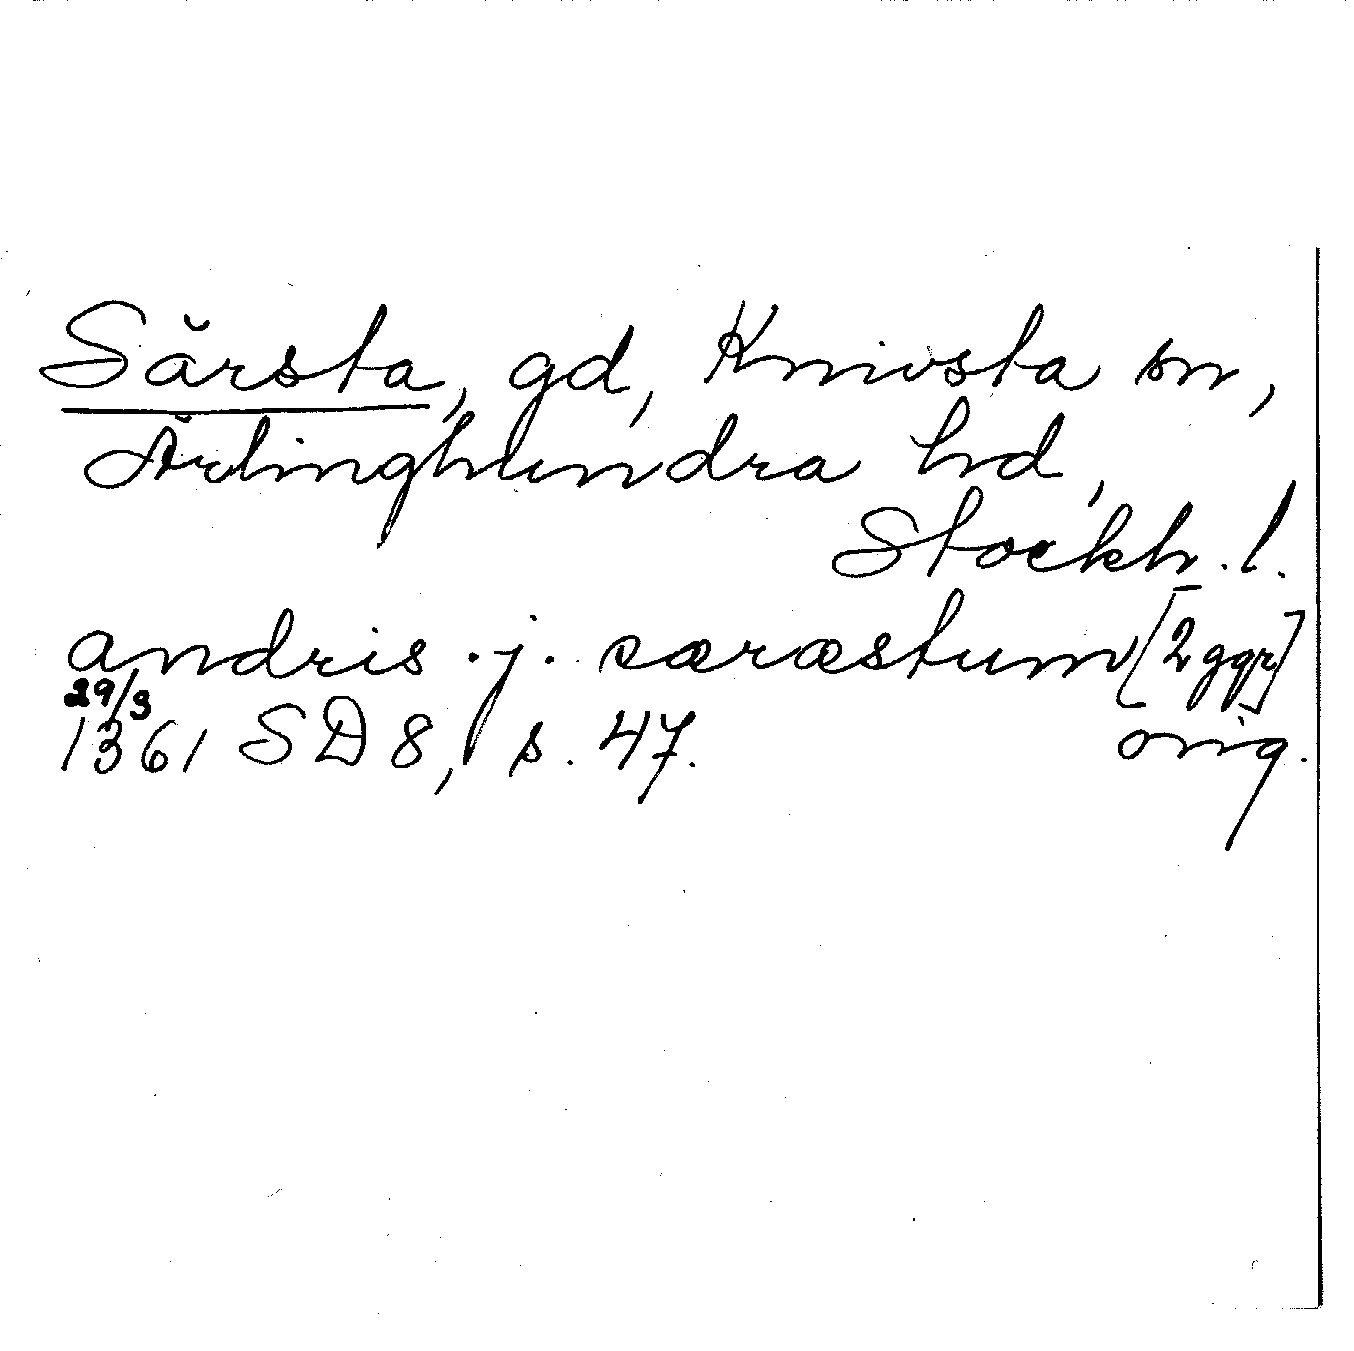 Särsta, gd, Knivsta sn,
Ärlinghundra hd,
Stockh. l.
andris . j . særæstum [2 ggr]
29/3 1361 SD 8, s. 47. orig.